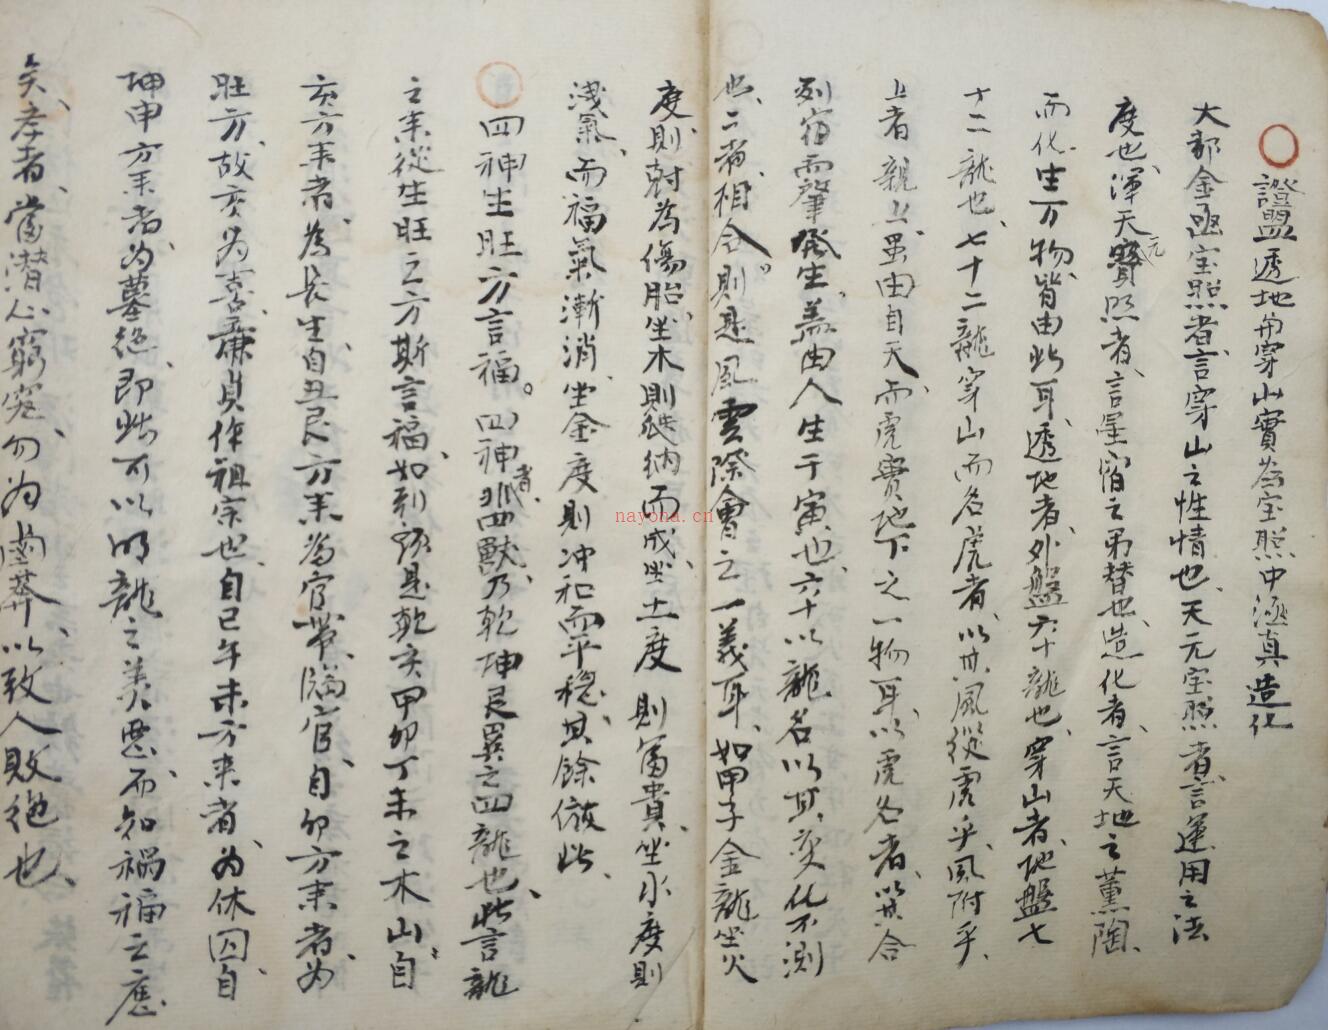 證盟透地與穿山實為宝照中涵真造化
大都金函宝照者言穿山之性情也天元宝照者言運用之法
度也渾天元寶照者言星宿之弟替也造化者言天地之薰陶
而化生万物皆由此耳透地者外盤六十龍也穿山者地盤七
十二龍也七十二龍穿山而名虎者以其風從虎乎風附乎
上者親上虽由自天而虎實地下之一物耳以虎名者以其合
列宿而肇發生盖由人生于寅也六十以龍名以其变化不測
也二者相合則是風雲際會之一義耳如甲子金龍坐火
度則尅為傷胎坐木則納而成坐土度則富貴坐水度則
洩氣而福氣漸消坐金度則冲和而平穩其餘倣此
四神生旺方言福。四神者非四獸乃乾坤艮巽之四龍也此言龍
之来從生旺之方斯言福如到頭是乾亥甲卯丁未之木山自
亥方来者為長生自丑艮方来為官帶臨官自卯方来者为
旺方故亥为喜廉貞作祖宗也自巳午未方来者为休囚自
坤申方来者为墓绝即此可以明龍之美恶而知禍福之應
矣孝者當潜心窮究勿为鹵莽以致人敗绝也
nayona.cn